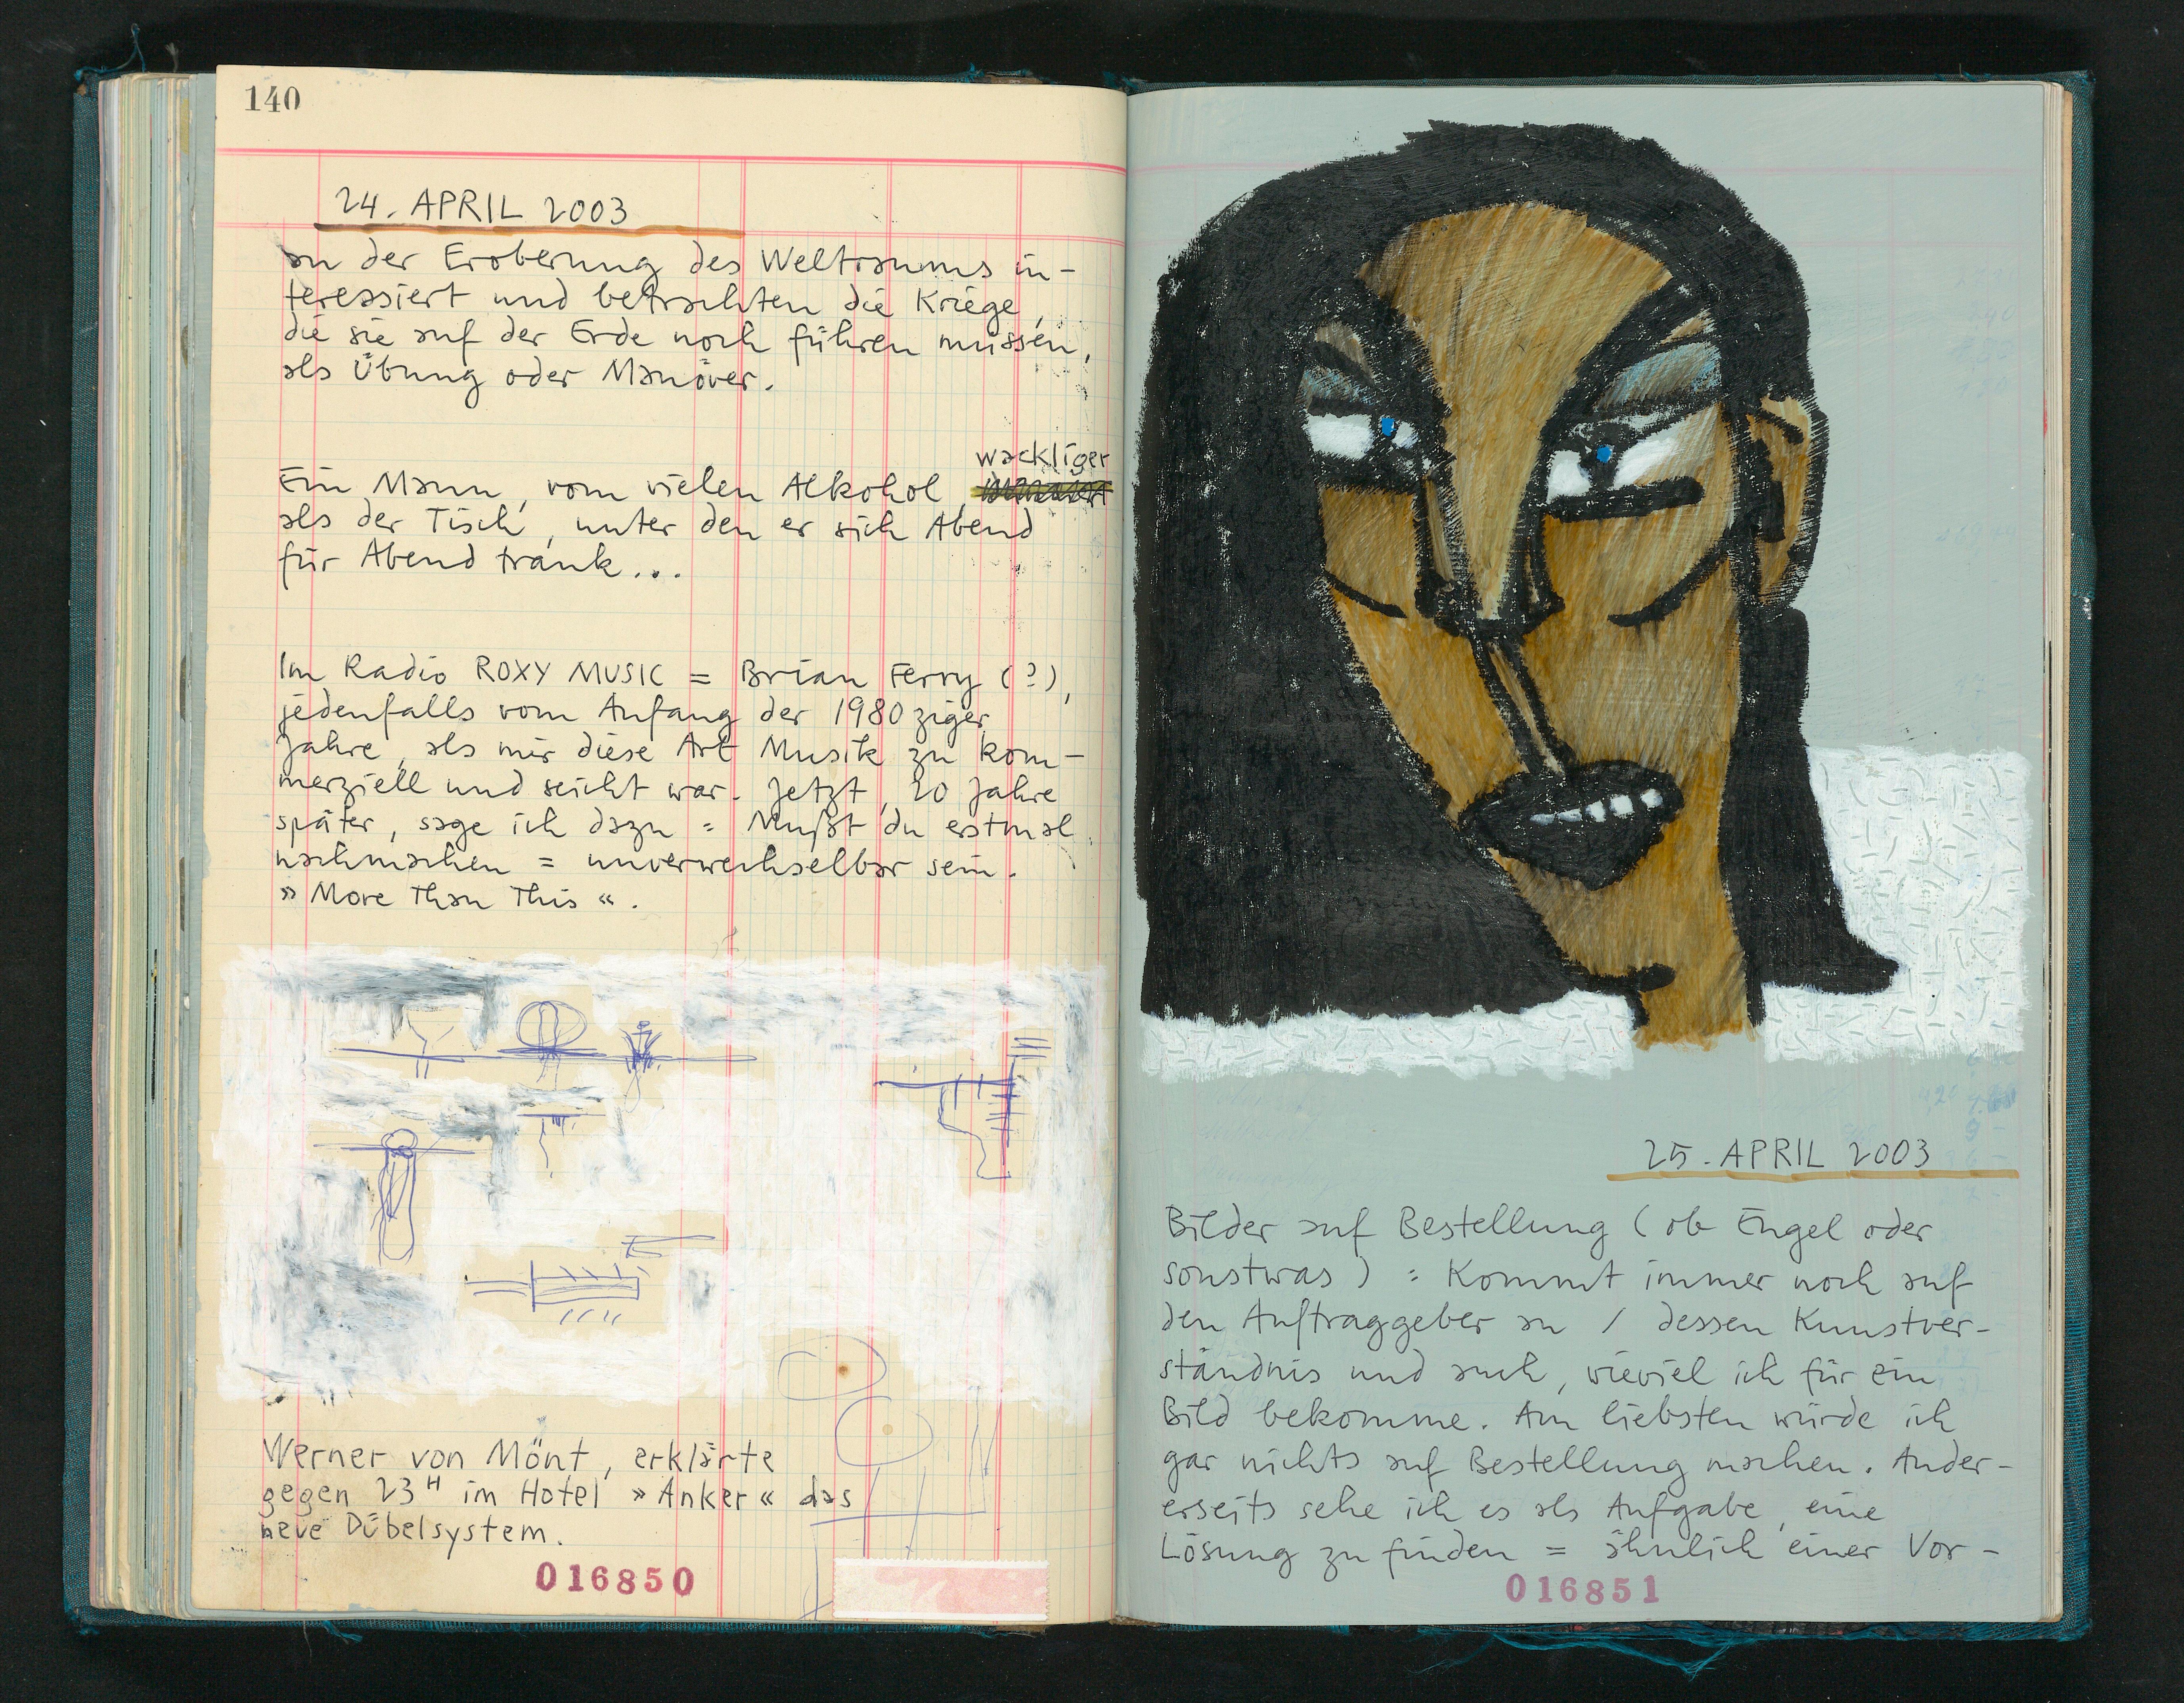 140
24. APRIL 2003
an der Eroberung des Weltraums in-
teressiert und betrachten die Kriege,
die sie auf der Erde noch führen müssen,
als Übung oder Manöver.
wackliger
Ein Mann, vom vielen Alkohol
als der Tisch, unter den er sich Abend
für Abend trank...
Im Radio ROXY MUSIC = Brian Ferry (?),
jedenfalls vom Anfang der 1980ziger
Jahre, als mir diese Art Musik zu kom-
merziell und seicht war. Jetzt, 20 Jahre
später, sage ich dazu = Mußt du erstmal
nachmachen = unverwechselbar sein.
» More Than This «.
Werner von Mönt, erklärte
gegen 23H im Hotel » Anker « das
neue Dübelsystem.
016850
25. APRIL 2003
Bilder auf Bestellung (ob Engel oder
sonstwas) : Kommt immer noch auf
den Auftraggeber an / dessen Kunstver-
ständnis und auch, wieviel ich für ein
Bild bekomme. Am liebsten würde ich
gar nichts auf Bestellung machen. Ander-
erseits sehe ich es als Aufgabe, eine
Lösung zu finden = ähnlich einer Vor-
016851